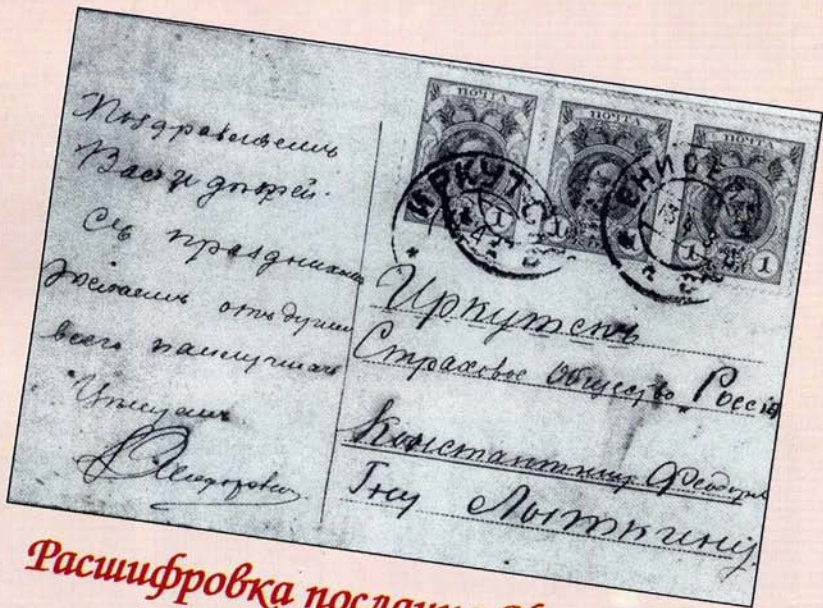 Поздравляемъ
Васъ и дѣтей
Съ праздникомъ
Желаемъ отъ души
всего наилучшаго
ПОЧТА
ПОЧТА
ПОЧТА
1 1
1
1 1
ИРКУТС
ЕНИСЕ
Иркутскъ
Страховое Общество „Россія
Константину Феодоров
Гну Лыткину
Расшифровка послания